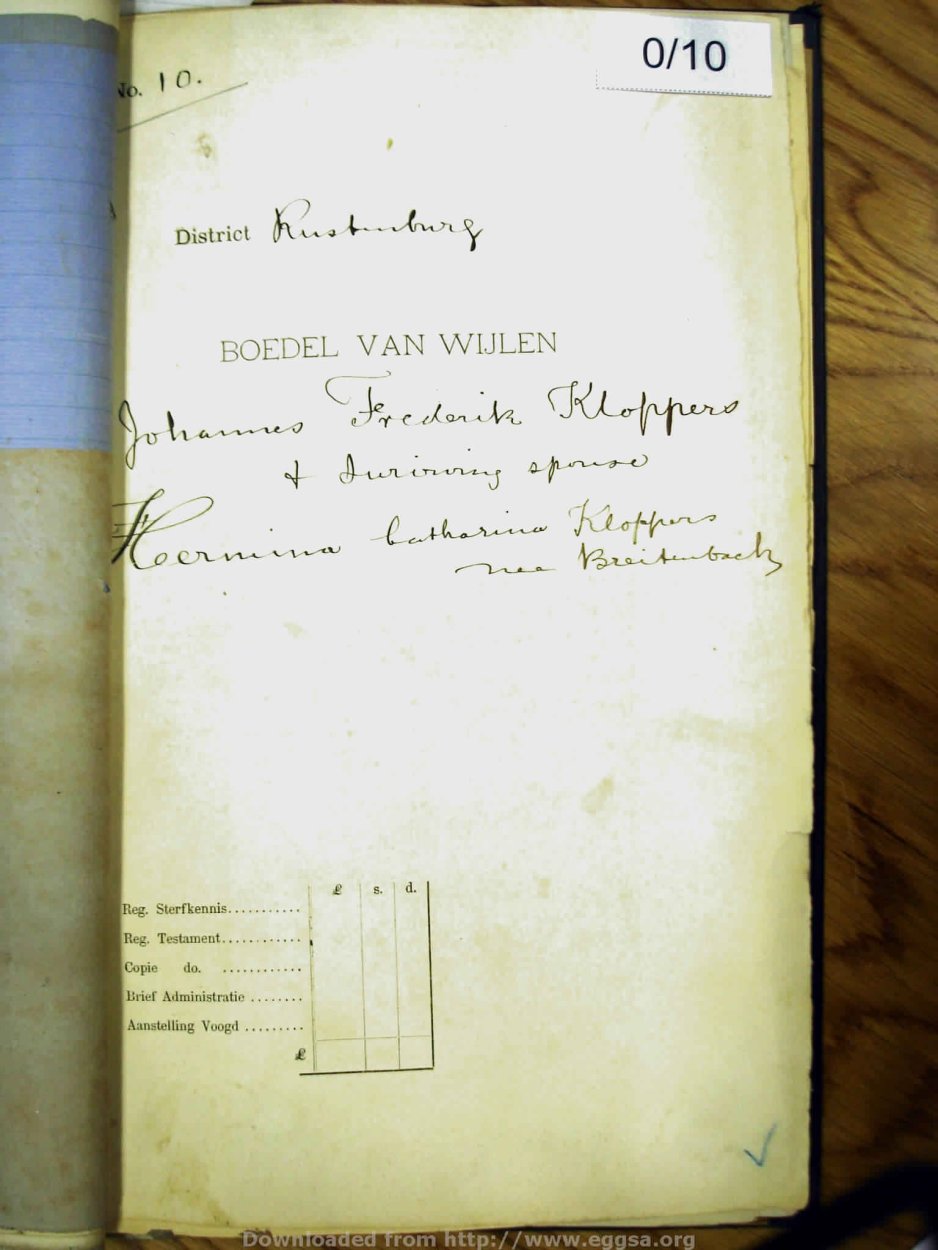 0/10
No. 10.
District Rustenburg
BOEDEL VAN WIJLEN
Johannes Frederik Kloppers
& surviving spouse
Hermina Catharina Kloppers
nee Breitenbach
£ s. d.
Reg. Sterfkennis...........
Reg. Testament............
Copie do. ............
Brief Administratie ........
Aanstelling Voogd .........
£
Downloaded from http://www.eggsa.org